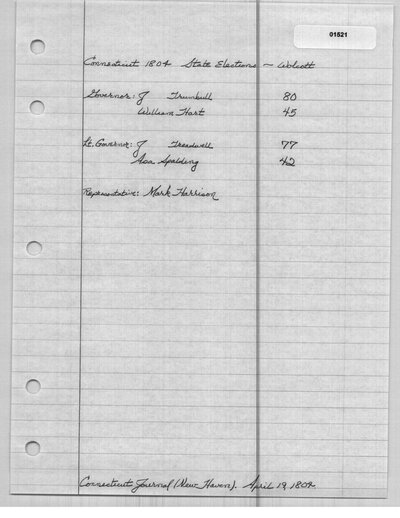 01521
Connecticut 1804 State Elections ~ Wolcott
Governor: J Trumbull 80
William Hart 45
Lt. Governor: J Treadwell 77
Asa Spalding 42
Representative: Mark Harrison
Connecticut Journal (New Haven). April 19, 1804.